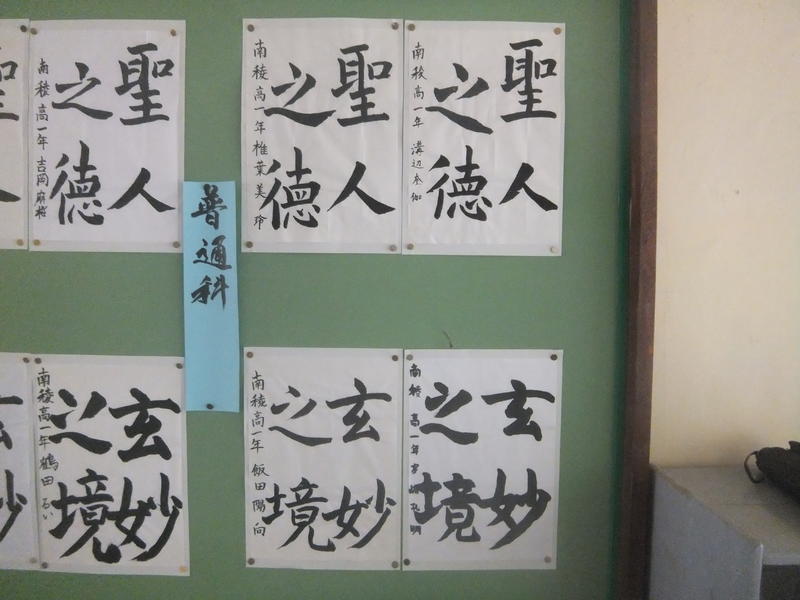 聖人
之徳
南稜高一年 吉岡麻裕
聖人
之徳
南稜高一年 椎葉美玲
聖人
之徳
南稜高一年 溝辺
普通科
玄妙
之境
南稜高一年 鶴田るい
玄妙
之境
南稜高一年 飯田陽向
玄妙
之境
南稜高一年